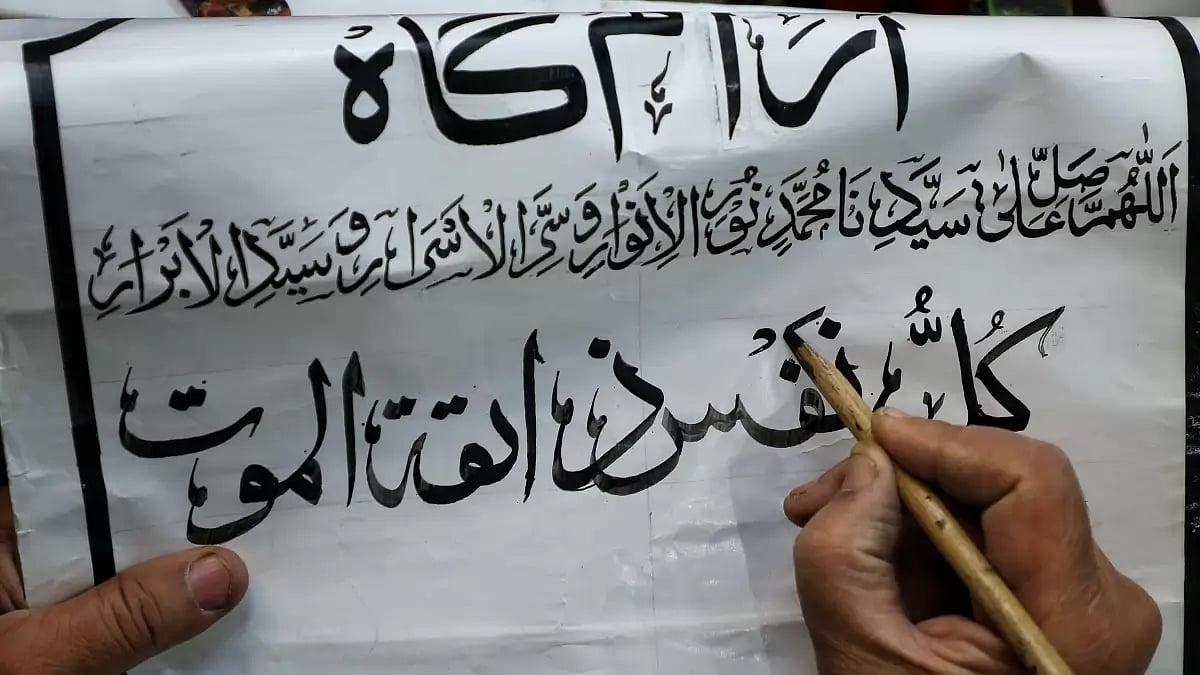 آرام گاہ
اَللّٰهُمَّ صَلِّ عَلىٰ سَيَّدِنَا مُحَمَّدٍ نُوْرِ الْاَنْوَارِ وَسِرِّ الْاَسْرَارِ وَ سَيَّدِ الْاَبْرَارِ
كُلُّ نفس ذائقة الموت